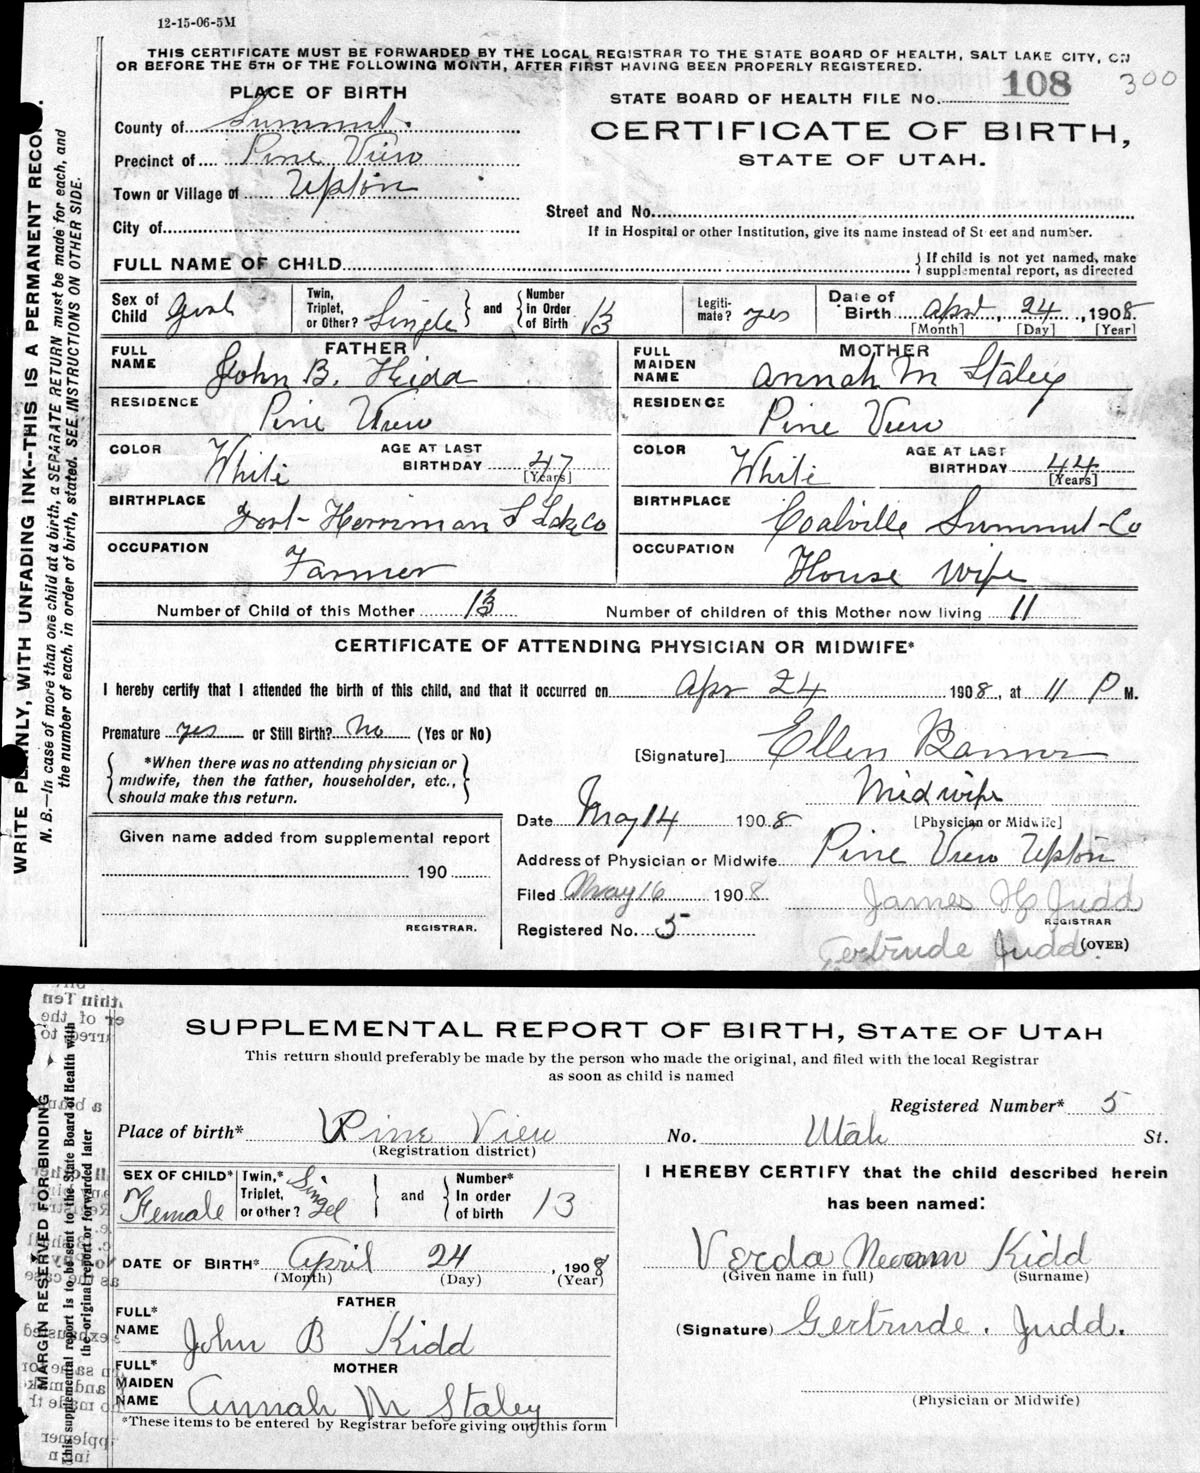 12-15-06-5M
THIS CERTIFICATE MUST BE FORWARDED BY THE LOCAL REGISTRAR TO THE STATE BOARD OF HEALTH, SALT LAKE CITY, ON
OR BEFORE THE 5TH OF THE FOLLOWING MONTH, AFTER FIRST HAVING BEEN PROPERLY REGISTERED.
PLACE OF BIRTH
STATE BOARD OF HEALTH FILE No. 108 300
County of Summit.
CERTIFICATE OF BIRTH,
Precinct of Pine View
STATE OF UTAH.
Town or Village of Upton
Street and No.
City of
If in Hospital or other Institution, give its name instead of Street and number.
FULL NAME OF CHILD
If child is not yet named, make supplemental report, as directed
Sex of Child Girl
Twin, Triplet, or Other? Single and Number In Order of Birth 13
Legitimate? yes
Date of Birth Aprl, 24, 1908
[Month] [Day] [Year]
FATHER
FULL NAME John B. Kidd
MOTHER
FULL MAIDEN NAME Annah M Staley
RESIDENCE Pine View
RESIDENCE Pine View
COLOR White AGE AT LAST BIRTHDAY 47 [Years]
COLOR White AGE AT LAST BIRTHDAY 44 [Years]
BIRTHPLACE Fort-Herriman S Lak Co
BIRTHPLACE Coalville Summit-Co
OCCUPATION Farmer
OCCUPATION House wife
Number of Child of this Mother 13 Number of children of this Mother now living 11
CERTIFICATE OF ATTENDING PHYSICIAN OR MIDWIFE*
I hereby certify that I attended the birth of this child, and that it occurred on Apr 24 1908, at 11 P M.
Premature yes or Still Birth? No (Yes or No)
[Signature] Ellen
*When there was no attending physician or
midwife, then the father, householder, etc.,
should make this return.
Midwife
[Physician or Midwife]
Date May 14 1908
Address of Physician or Midwife Pine View Upton
Given name added from supplemental report
190
REGISTRAR.
Filed May 16 1908
James H Judd
REGISTRAR
Registered No. 5
Gertrude Judd.
(OVER)
WRITE PLAINLY, WITH UNFADING INK--THIS IS A PERMANENT RECORD.
N. B.—In case of more than one child at a birth, a SEPARATE RETURN must be made for each, and
the number of each, in order of birth, stated. SEE INSTRUCTIONS ON OTHER SIDE.
SUPPLEMENTAL REPORT OF BIRTH, STATE OF UTAH
This return should preferably be made by the person who made the original, and filed with the local Registrar
as soon as child is named
Registered Number* 5
Place of birth* Pine View No. Utah St.
(Registration district)
SEX OF CHILD* Female
Twin,* Triplet, or other? Singel and Number* In order of birth 13
I HEREBY CERTIFY that the child described herein
has been named:
DATE OF BIRTH* April 24, 1908
(Month) (Day) (Year)
Verda Kidd
(Given name in full) (Surname)
FATHER
FULL* NAME John B Kidd
(Signature) Gertrude. Judd.
MOTHER
FULL* MAIDEN NAME Annah M Staley
(Physician or Midwife)
*These items to be entered by Registrar before giving out this form
MARGIN RESERVED FOR BINDING
This supplemental report is to be sent to the State Board of Health with
the original report or forwarded later